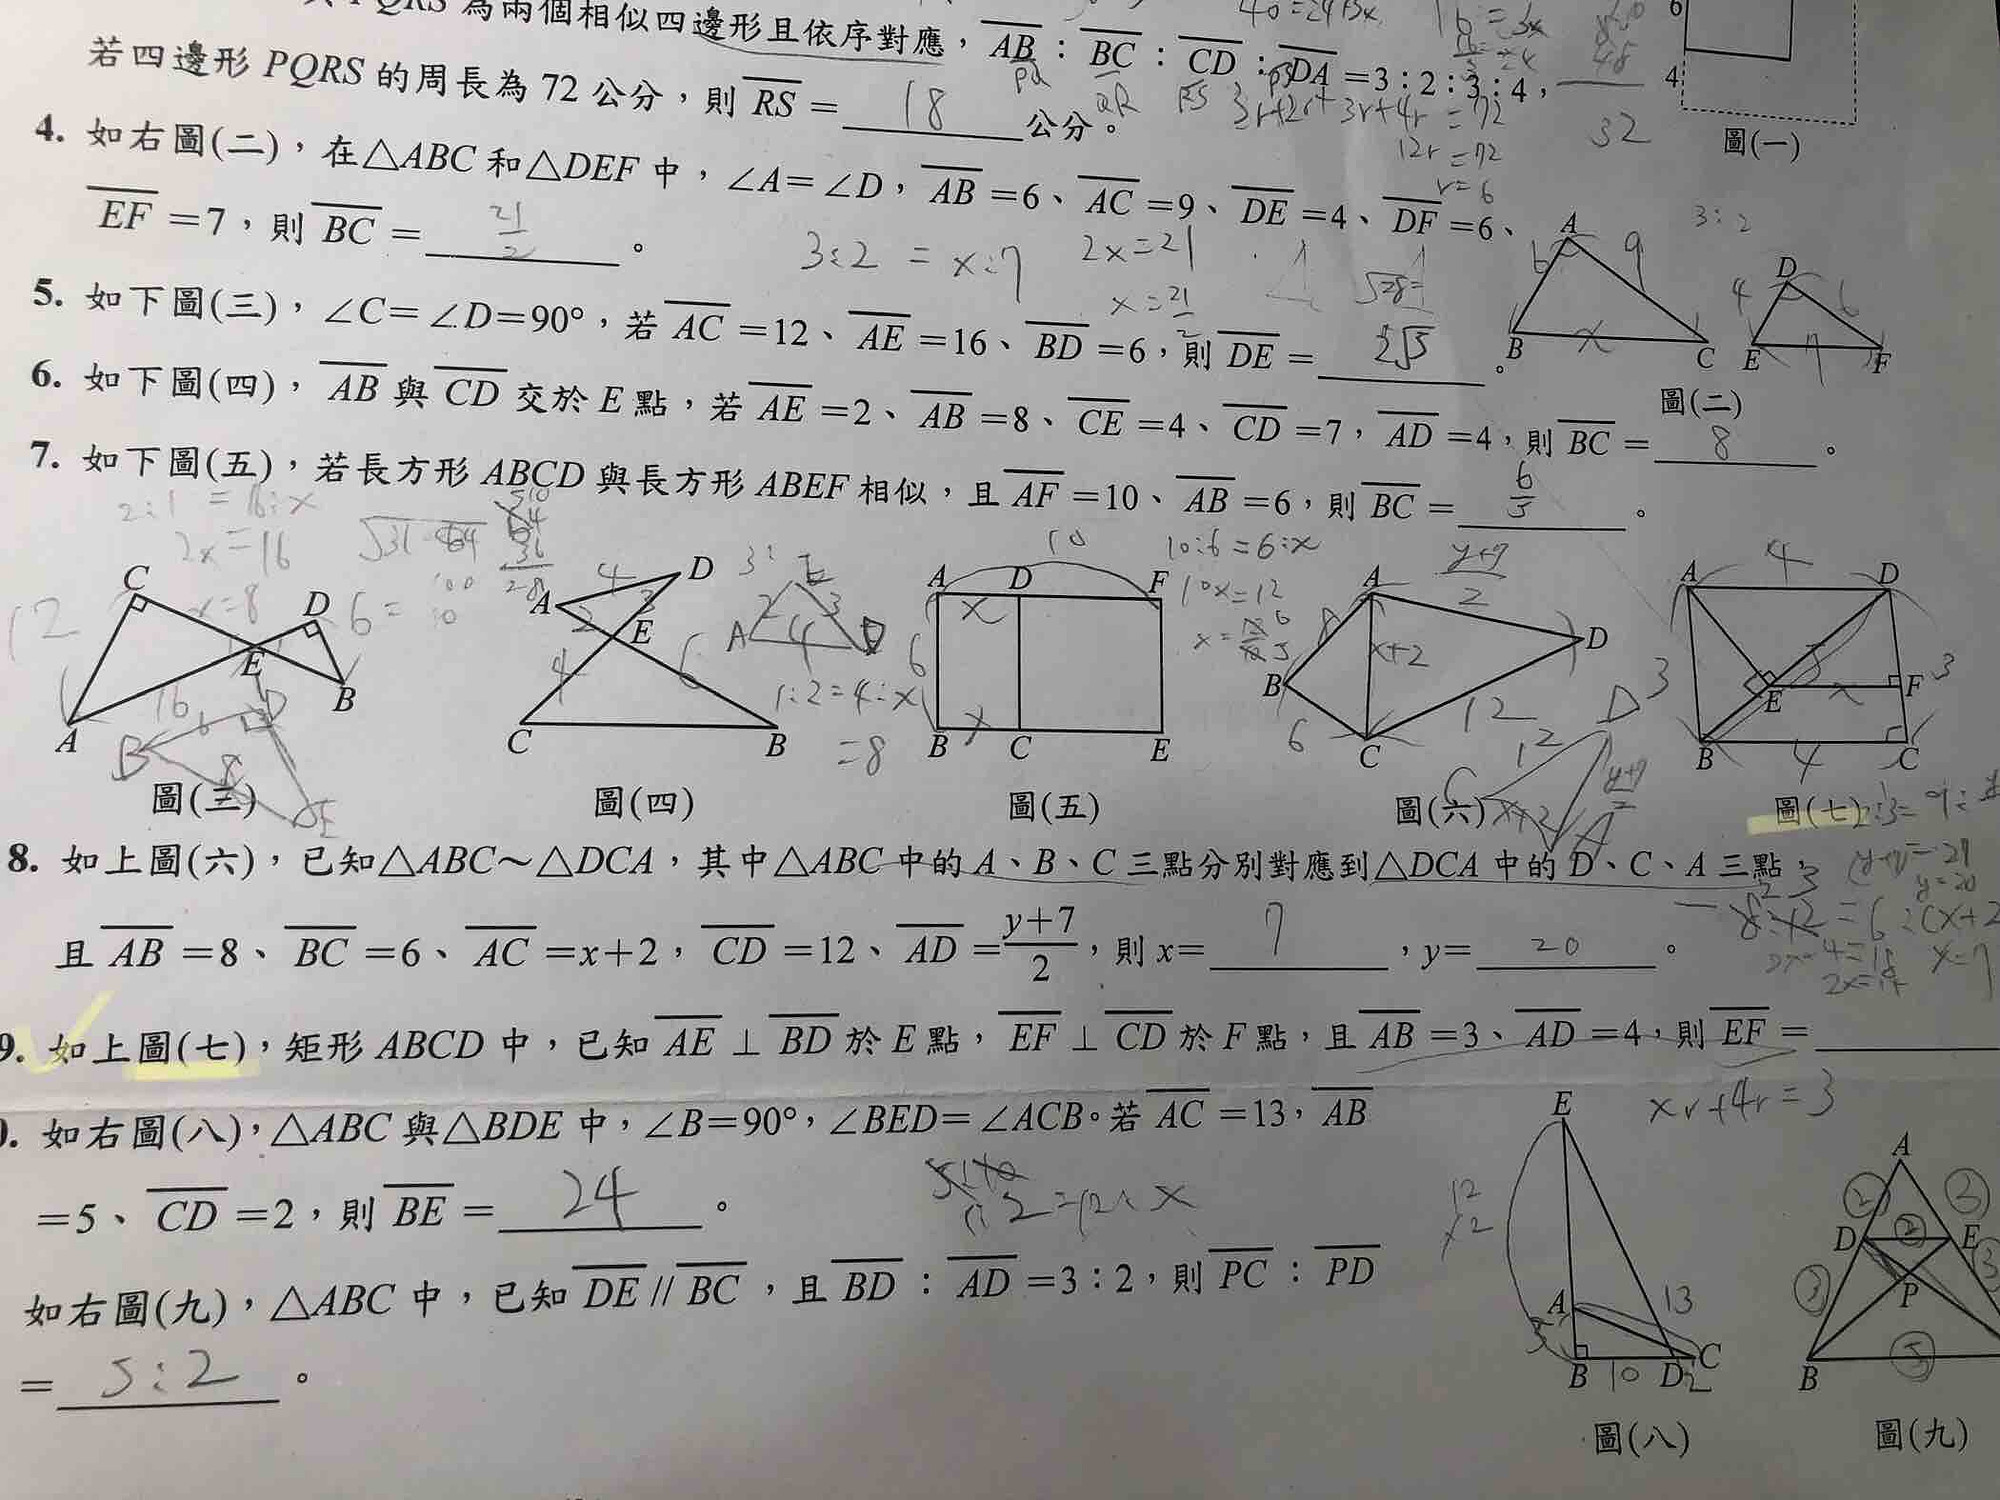 PQRS 為兩個相似四邊形且依序對應，AB：BC：CD：DA＝3：2：3：4，
若四邊形 PQRS 的周長為 72 公分，則 RS＝ 18 公分。
3r+2r+3r+4r=72
12r=72
r=6
32
6
4
圖(一)
4. 如右圖(二)，在△ABC 和△DEF 中，∠A＝∠D，AB＝6、AC＝9、DE＝4、DF＝6、
EF＝7，則 BC＝ 21/2 。
3:2 = x:7
2x=21
x=21/2
3:2
A 6 9 B x C
D 4 6 E 7 F
圖(二)
5. 如下圖(三)，∠C＝∠D＝90°，若 AC＝12、AE＝16、BD＝6，則 DE＝ 2√5 。
6. 如下圖(四)，AB 與 CD 交於 E 點，若 AE＝2、AB＝8、CE＝4、CD＝7，AD＝4，則 BC＝ 8 。
7. 如下圖(五)，若長方形 ABCD 與長方形 ABEF 相似，且 AF＝10、AB＝6，則 BC＝ 6/5 。
2:1 = 16:x
2x=16
x=8
C D E A B 12 16 6
圖(三)
A D E C B 4 2 3 4 6
1:2=4:x
=8
圖(四)
A D F B C E 10 6 x x
10:6=6:x
10x=12
圖(五)
A B C D 8 6 12 x+2 y+7/2
圖(六)
A D B C E F 4 3 4 3 x
圖(七)
8. 如上圖(六)，已知△ABC～△DCA，其中△ABC 中的 A、B、C 三點分別對應到△DCA 中的 D、C、A 三點，
且 AB＝8、BC＝6、AC＝x＋2，CD＝12、AD＝y＋7/2，則 x＝ 7 ，y＝ 20 。
y=20
x=7
9. 如上圖(七)，矩形 ABCD 中，已知 AE⊥BD 於 E 點，EF⊥CD 於 F 點，且 AB＝3、AD＝4，則 EF＝
xr+4r=3
. 如右圖(八)，△ABC 與△BDE 中，∠B＝90°，∠BED＝∠ACB。若 AC＝13，AB
＝5、CD＝2，則 BE＝ 24 。
E A B D C 5 13 10 2
12
x2
圖(八)
如右圖(九)，△ABC 中，已知 DE // BC，且 BD：AD＝3：2，則 PC：PD
＝ 5:2 。
A D E P B 2 3 2 3 3 5
圖(九)